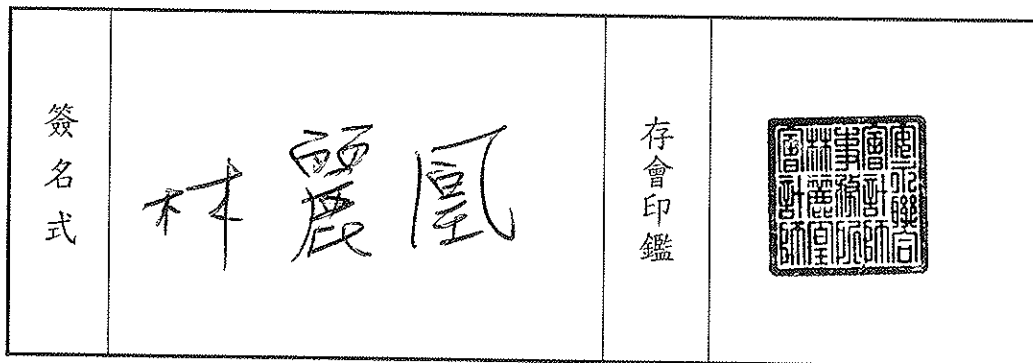 簽名式
林麗凰
存會印鑑
安永聯合
會計師
事務所
林麗凰
會計師